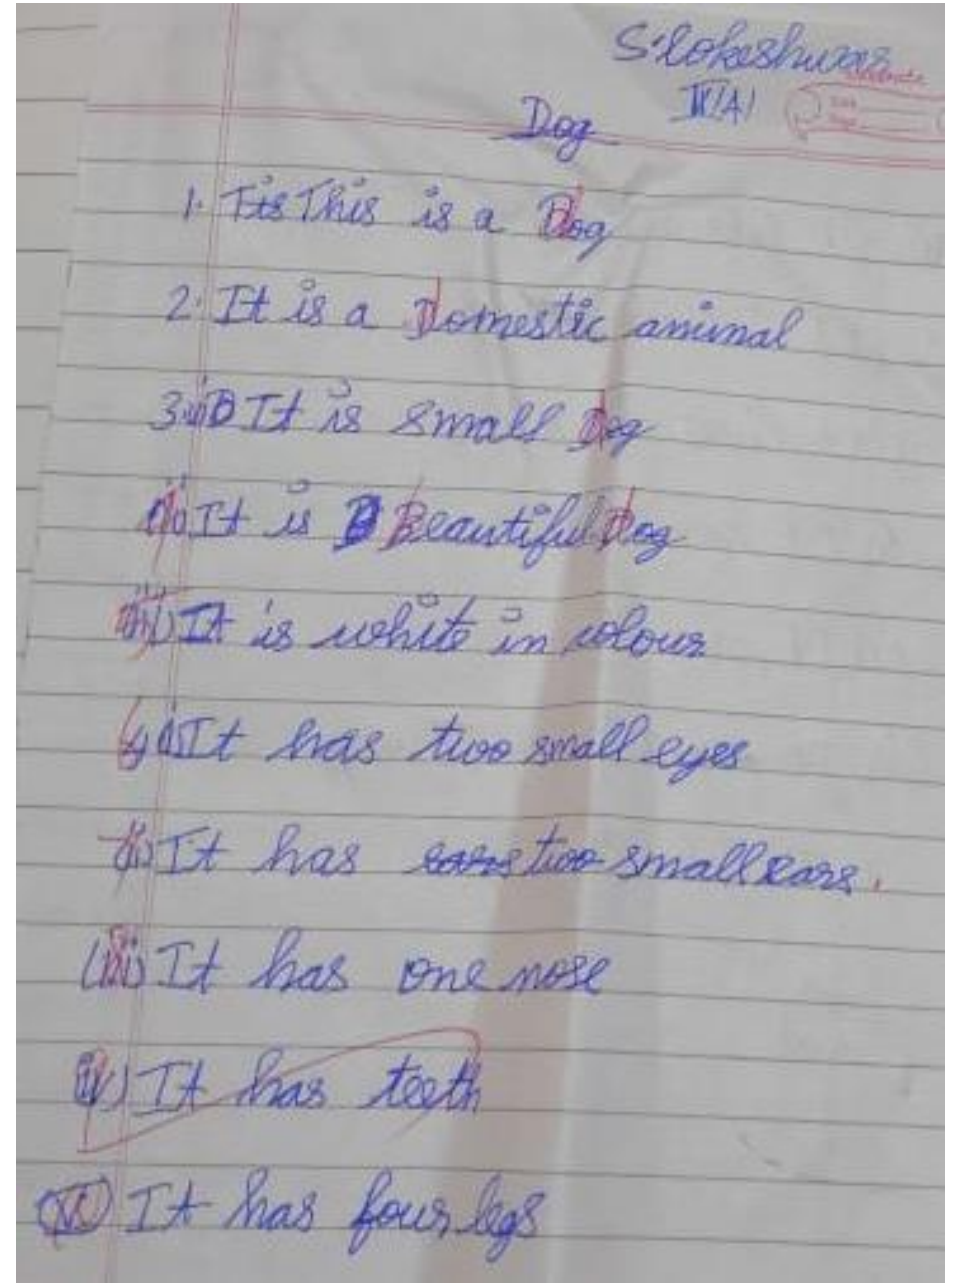 S. Lokeshwar
IV(A)
Dog
1. Tis This is a Dog
2. It is a Domestic animal
3. It is small Dog
It is Beautiful Dog
It is white in colour
It has two small eyes
It has ears two small ears.
It has one nose
It has teeth
It has four legs